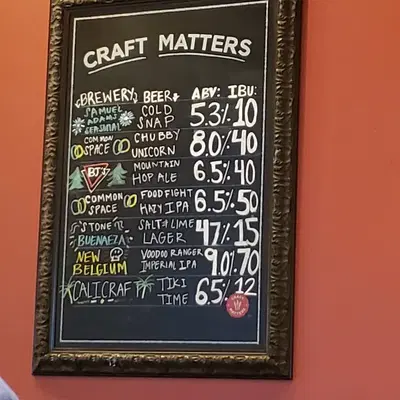 CRAFT MATTERS
BREWERY BEER ABV: IBU:
SAMUEL ADAMS SEASONAL COLD SNAP 5.3% 10
COMMON SPACE CHUBBY UNICORN 8.0% 40
BJ'S MOUNTAIN HOP ALE 6.5% 40
COMMON SPACE FOOD FIGHT HAZY IPA 6.5% 50
STONE BUENAEZA SALT & LIME LAGER 4.7% 15
NEW BELGIUM VOODOO RANGER IMPERIAL IPA 9.0% 70
CALICRAFT TIKI TIME 6.5% 12